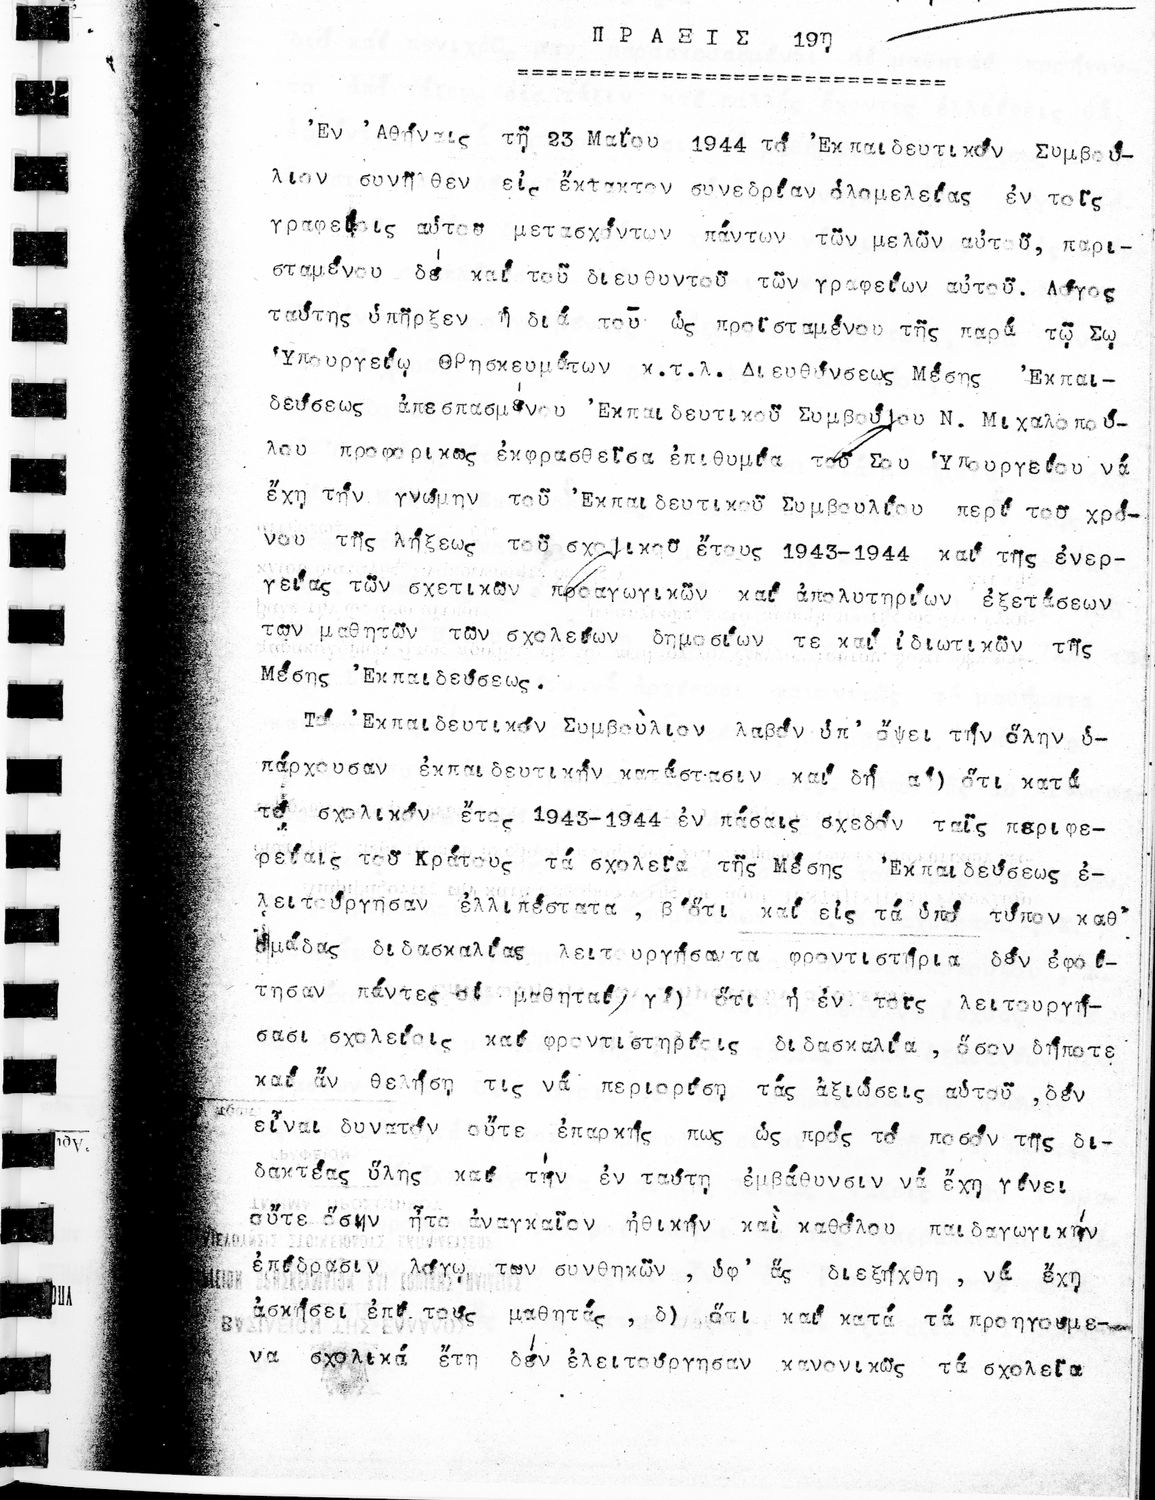 ΠΡΑΞΙΣ 19η
==============================
Ἐν Ἀθήναις τῇ 23 Μαΐου 1944 τό Ἐκπαιδευτικόν Συμβού-
λιον συνῆλθεν εἰς ἔκτακτον συνεδρίαν ὁλομελείας ἐν τοῖς
γραφείοις αὐτοῦ μετασχόντων πάντων τῶν μελῶν αὐτοῦ, παρι-
σταμένου δέ καί τοῦ διευθυντοῦ τῶν γραφείων αὐτοῦ. Λόγος
ταύτης ὑπῆρξεν ἡ διά τοῦ ὡς προϊσταμένου τῆς παρά τῷ Σῳ
Ὑπουργείῳ Θρησκευμάτων κ.τ.λ. Διευθύνσεως Μέσης Ἐκπαι-
δεύσεως ἀπεσπασμένου Ἐκπαιδευτικοῦ Συμβούλου Ν. Μιχαλοπού-
λου προφορικῶς ἐκφρασθεῖσα ἐπιθυμία τοῦ Σου Ὑπουργείου νά
ἔχῃ τήν γνώμην τοῦ Ἐκπαιδευτικοῦ Συμβουλίου περί τοῦ χρό-
νου τῆς λήξεως τοῦ σχολικοῦ ἔτους 1943-1944 καί τῆς ἐνερ-
γείας τῶν σχετικῶν προαγωγικῶν καί ἀπολυτηρίων ἐξετάσεων
τῶν μαθητῶν τῶν σχολείων δημοσίων τε καί ἰδιωτικῶν τῆς
Μέσης Ἐκπαιδεύσεως.
Τό Ἐκπαιδευτικόν Συμβούλιον λαβόν ὑπ' ὄψει τήν ὅλην ὑ-
πάρχουσαν ἐκπαιδευτικήν κατάστασιν καί δή α') ὅτι κατά
τό σχολικόν ἔτος 1943-1944 ἐν πάσαις σχεδόν ταῖς περιφε-
ρείαις τοῦ Κράτους τά σχολεῖα τῆς Μέσης Ἐκπαιδεύσεως ἐ-
λειτούργησαν ἐλλιπέστατα, β'ὅτι καί εἰς τά ὑπό τύπον καθ'
ὁμάδας διδασκαλίας λειτουργήσαντα φροντιστήρια δέν ἐφοί-
τησαν πάντες οἱ μαθηταί, γ') ὅτι ἡ ἐν τοῖς λειτουργή-
σασι σχολείοις καί φροντιστηρίοις διδασκαλία, ὅσον δήποτε
καί ἄν θελήσῃ τις νά περιορίσῃ τάς ἀξιώσεις αὐτοῦ, δέν
εἶναι δυνατόν οὔτε ἐπαρκής πως ὡς πρός τό ποσόν τῆς δι-
δακτέας ὕλης καί τήν ἐν ταύτῃ ἐμβάθυνσιν νά ἔχῃ γίνει
οὔτε ὅσην ἦτο ἀναγκαῖον ἠθικήν καὶ καθόλου παιδαγωγικήν
ἐπίδρασιν λόγῳ τῶν συνθηκῶν, ὑφ' ἅς διεξήχθη, νά ἔχῃ
ἀσκήσει ἐπί τούς μαθητάς, δ) ὅτι καί κατά τά προηγούμε-
να σχολικά ἔτη δέν ἐλειτούργησαν κανονικῶς τά σχολεῖα